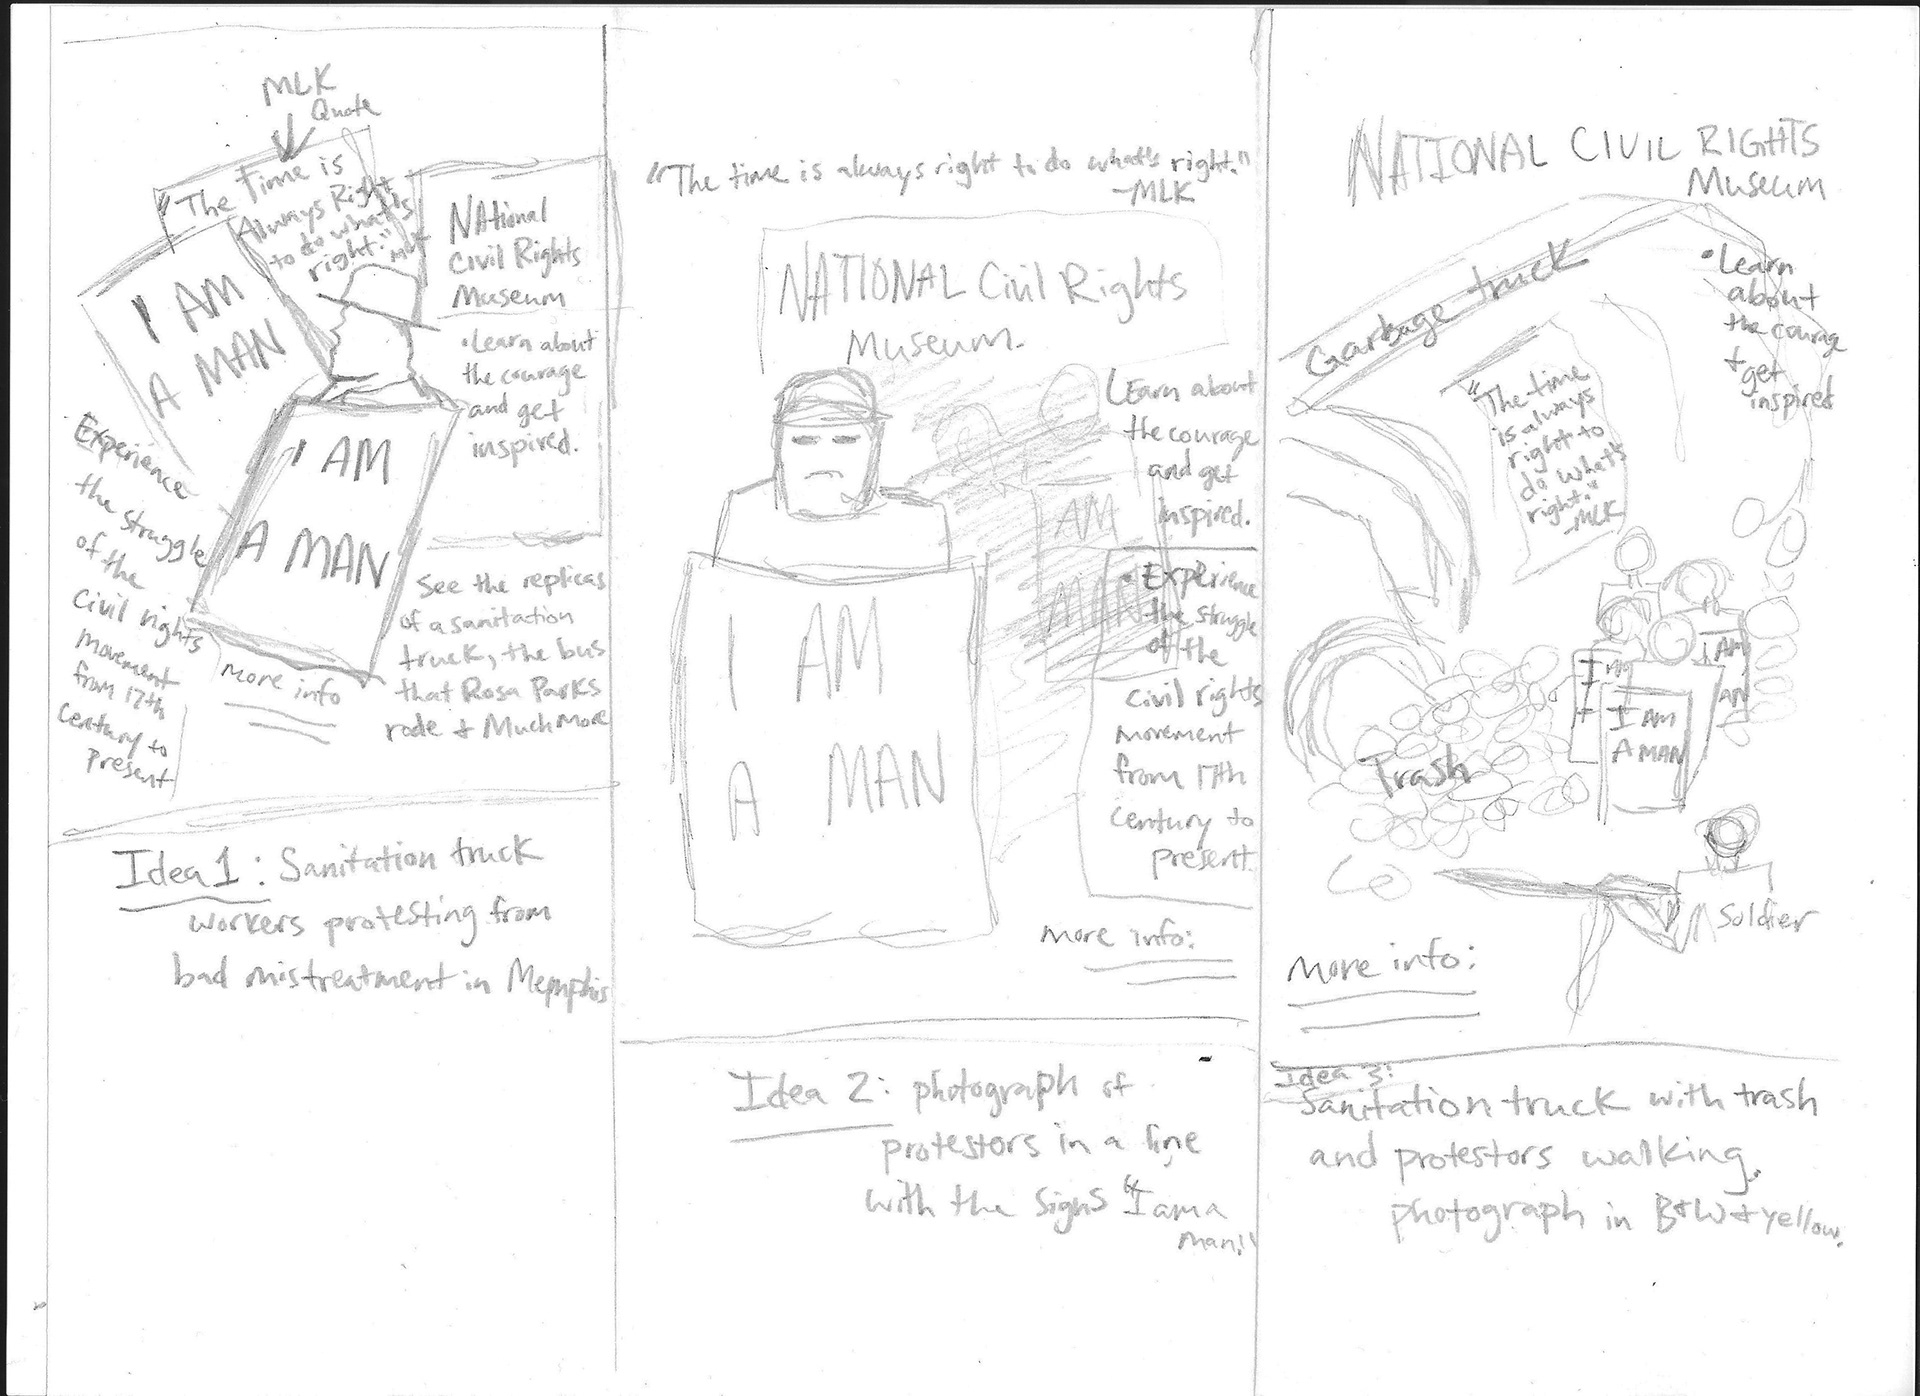 MLK
Quote
"The time is
Always Right
to do what's
right." MLK
I AM
A MAN
National
Civil Rights
Museum
• Learn about
the courage
and get
inspired.
I AM
A MAN
Experience
the struggle
of the
Civil rights
movement
from 17th
Century to
present
More info
See the replicas
of a sanitation
truck, the bus
that Rosa Parks
rode & Much more
Idea 1: Sanitation truck
workers protesting from
bad mistreatment in Memphis
"The time is always right to do what's right."
-MLK
NATIONAL Civil Rights
Museum.
Learn about
the courage
and get
inspired.
I AM
A MAN
AM
MAN
• Experience
the struggle
of the
Civil rights
movement
from 17th
Century to
present.
More info:
Idea 2: photograph of
protestors in a line
with the signs "I am a
man."
NATIONAL CIVIL RIGHTS
Museum
Garbage truck
• Learn
about
the courage
+ get
inspired
"The time
is always
right to
do what's
right."
-MLK
I AM
I AM
AM
I AM
A MAN
Trash
Soldier
More info:
Idea 3:
Sanitation truck with trash
and protestors walking.
photograph in B+W + yellow.